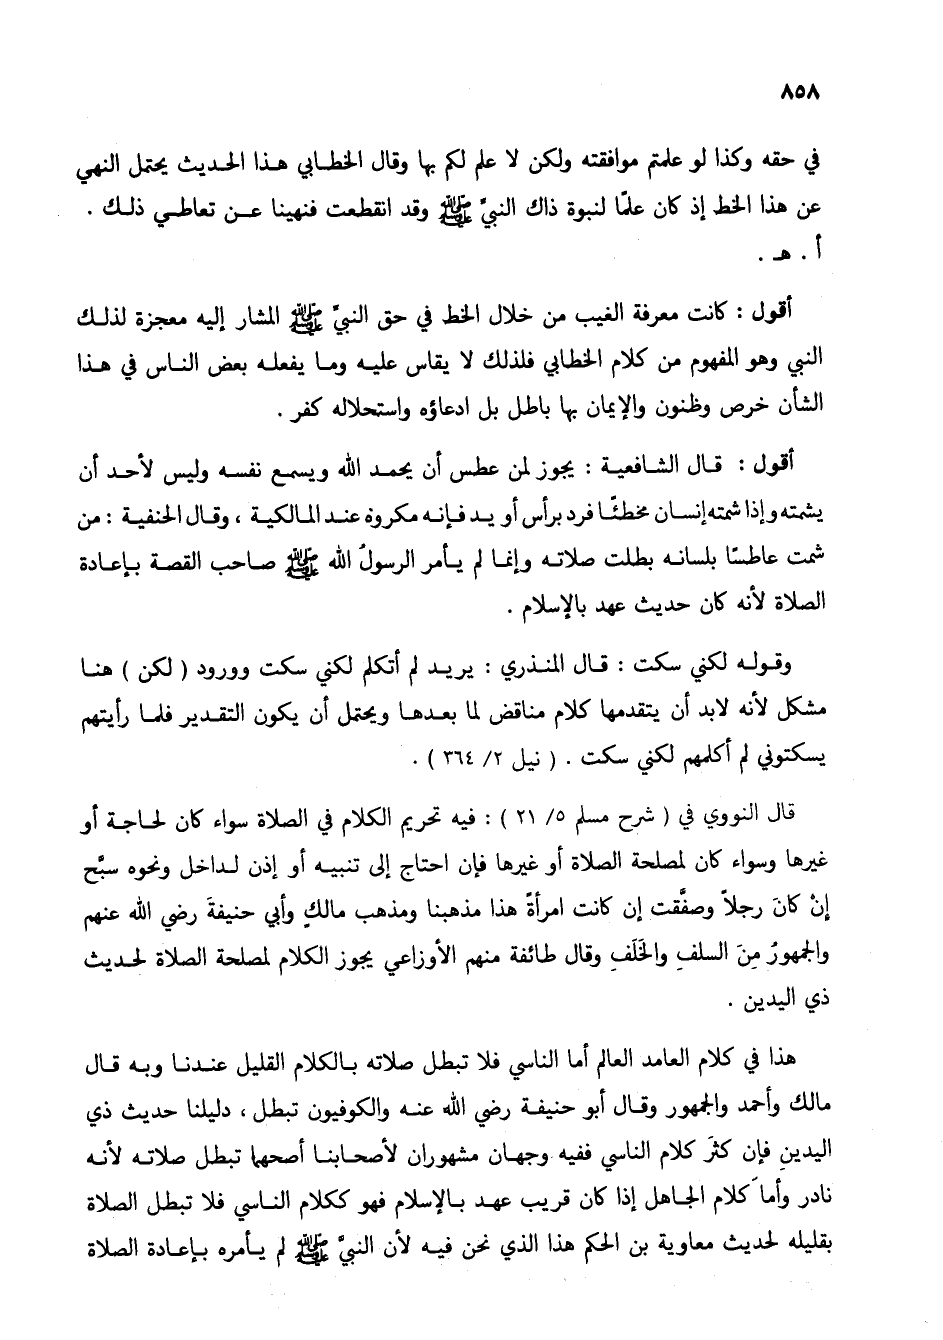 ٨٥٨
في حقه وكذا لو علمتم موافقته ولكن لا علم لكم بها وقال الخطابي هذا الحديث يحتمل النهي
عن هذا الخط إذ كان علمًا لنبوة ذاك النبيِّ ﷺ وقد انقطعت فنهينا عن تعاطي ذلك .
أ . هـ .
أقول : كانت معرفة الغيب من خلال الخط في حق النبيِّ ﷺ المشار إليه معجزة لذلك
النبي وهو المفهوم من كلام الخطابي فلذلك لا يقاس عليه وما يفعله بعض الناس في هذا
الشأن خرص وظنون والإيمان بها باطل بل ادعاؤه واستحلاله كفر .
أقول : قال الشافعية : يجوز لمن عطس أن يحمد الله ويسمع نفسه وليس لأحد أن
يشمته وإذا شمته إنسان مخطئًا فرد برأس أو يد فإنه مكروه عند المالكية ، وقال الحنفية : من
شمت عاطسًا بلسانه بطلت صلاته وإنما لم يأمر الرسولُ الله ﷺ صاحب القصة بإعادة
الصلاة لأنه كان حديث عهد بالإسلام .
وقوله لكني سكت : قال المنذري : يريد لم أتكلم لكني سكت وورود ( لكن ) هنا
مشكل لأنه لابد أن يتقدمها كلام مناقض لما بعدها ويحتمل أن يكون التقدير فلما رأيتهم
يسكتوني لم أكلمهم لكني سكت . ( نيل ٢/ ٣٦٤ ) .
قال النووي في ( شرح مسلم ٥/ ٢١ ) : فيه تحريم الكلام في الصلاة سواء كان لحاجة أو
غيرها وسواء كان لمصلحة الصلاة أو غيرها فإن احتاج إلى تنبيه أو إذن لداخل ونحوه سبَّح
إنْ كانَ رجلاً وصفَّقت إن كانت امرأةً هذا مذهبنا ومذهب مالكٍ وأبي حنيفةَ رضي الله عنهم
والجمهورُ مِنَ السلفِ والخَلَفِ وقال طائفة منهم الأوزاعي يجوز الكلام لمصلحة الصلاة لحديث
ذي اليدين .
هذا في كلام العامد العالم أما الناسي فلا تبطل صلاته بالكلام القليل عندنا وبه قال
مالك وأحمد والجمهور وقال أبو حنيفة رضي الله عنه والكوفيون تبطل ، دليلنا حديث ذي
اليدينِ فإن كثرَ كلام الناسي ففيه وجهان مشهوران لأصحابنا أصحهما تبطل صلاته لأنه
نادر وأما كلام الجاهل إذا كان قريب عهد بالإسلام فهو ككلام الناسي فلا تبطل الصلاة
بقليله لحديث معاوية بن الحكم هذا الذي نحن فيه لأن النبيَّ ﷺ لم يأمره بإعادة الصلاة